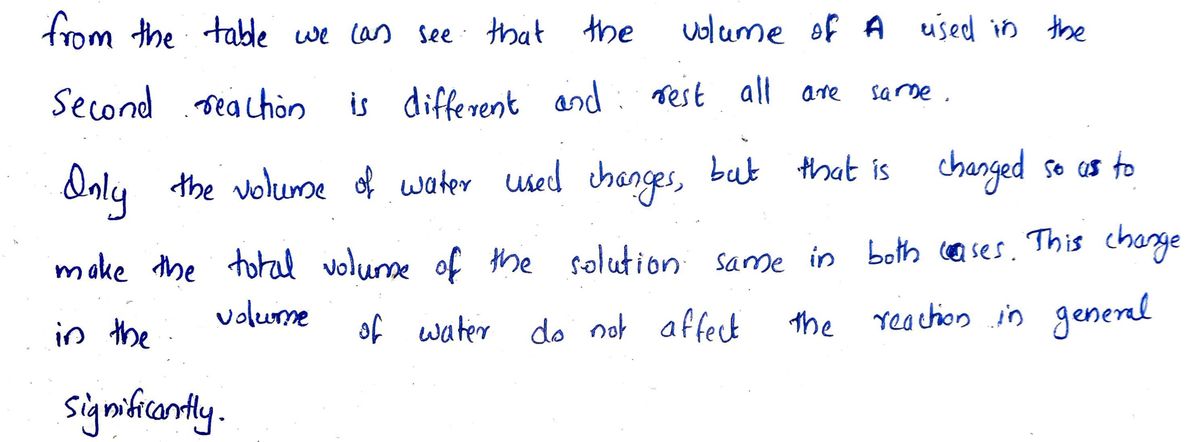 from the table we can see that the volume of A used in the
Second reaction is different and rest all are same.
Only the volume of water used changes, but that is changed so as to
make the total volume of the solution same in both cases. This change
in the volume of water do not affect the reaction in general
significantly.